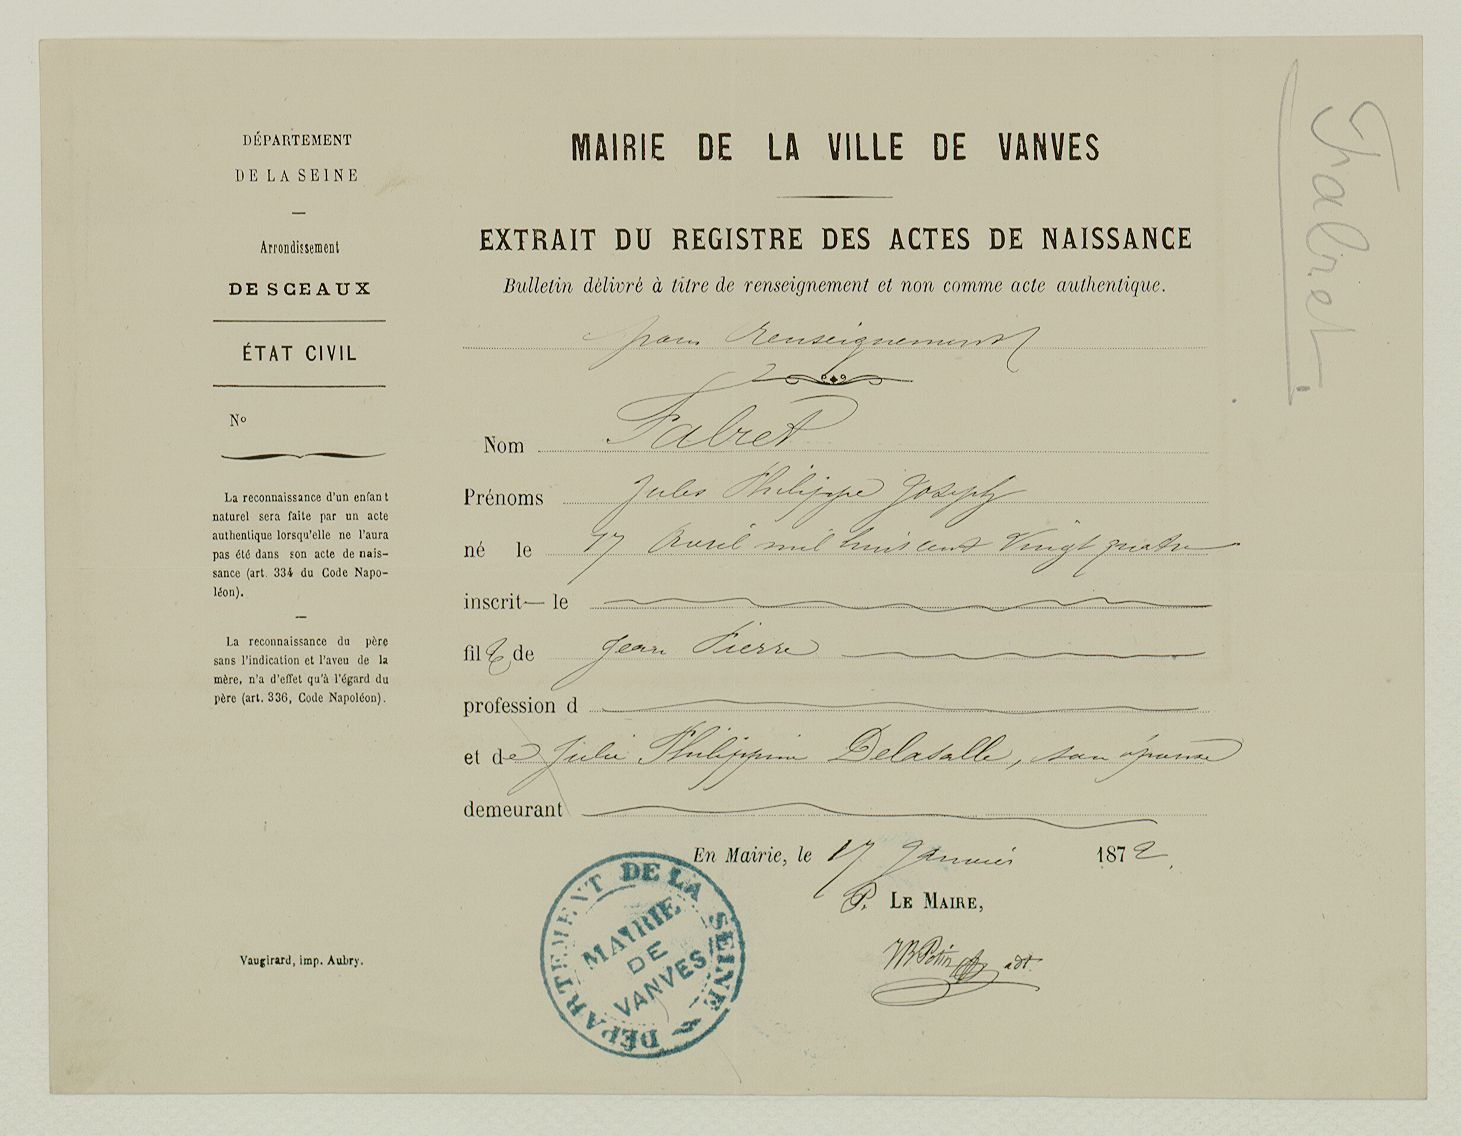 DÉPARTEMENT
DE LA SEINE
Arrondissement
DE SCEAUX
ÉTAT CIVIL
No
La reconnaissance d'un enfant
naturel sera faite par un acte
authentique lorsqu'elle ne l'aura
pas été dans son acte de nais-
sance (art. 334 du Code Napo-
léon).
La reconnaissance du père
sans l'indication et l'aveu de la
mère, n'a d'effet qu'à l'égard du
père (art. 336, Code Napoléon).
Vaugirard, imp. Aubry.
MAIRIE DE LA VILLE DE VANVES
EXTRAIT DU REGISTRE DES ACTES DE NAISSANCE
Bulletin délivré à titre de renseignement et non comme acte authentique.
pour renseignement
Nom Falret
Prénoms Jules Philippe Joseph
né le 17 Avril mil huit cent vingt quatre
inscrit— le
fils de Jean Pierre
profession d
et de Julie Philippine Delasalle, son épouse
demeurant
En Mairie, le 17 Janvier 1872.
P. LE MAIRE,
adt
DÉPARTEMENT DE LA SEINE
MAIRIE
DE
VANVES
Falret.